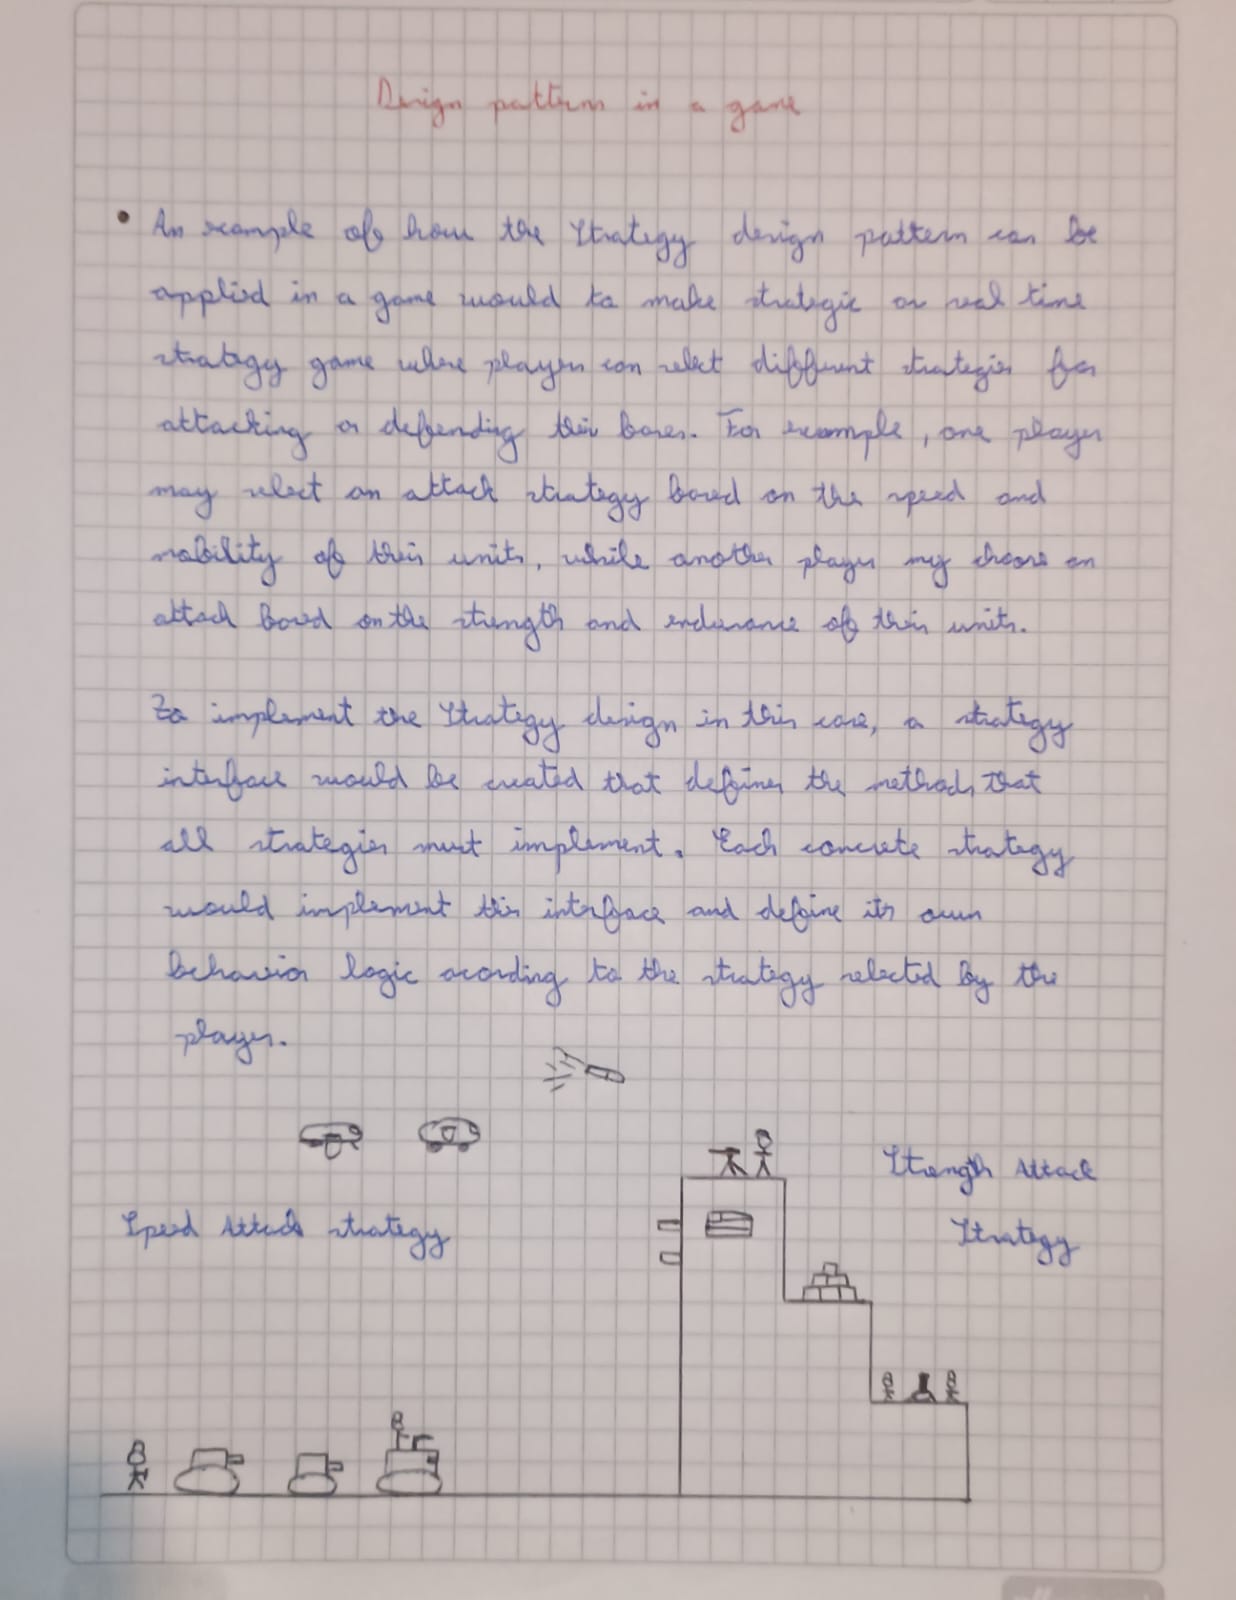 Design pattern in a game
• An example of how the Strategy design pattern can be
applied in a game would to make strategic or real time
strategy game where players can select different strategies for
attacking or defending their bases. For example, one player
may select an attack strategy based on the speed and
mobility of their units, while another player my choose an
attack based on the strength and endurance of their units.
To implement the Strategy design in this case, a strategy
interface would be created that defines the methods that
all strategies must implement. Each concrete strategy
would implement this interface and define its own
behavior logic acording to the strategy selected by the
player.
Strength Attack
Speed Attack strategy
Strategy